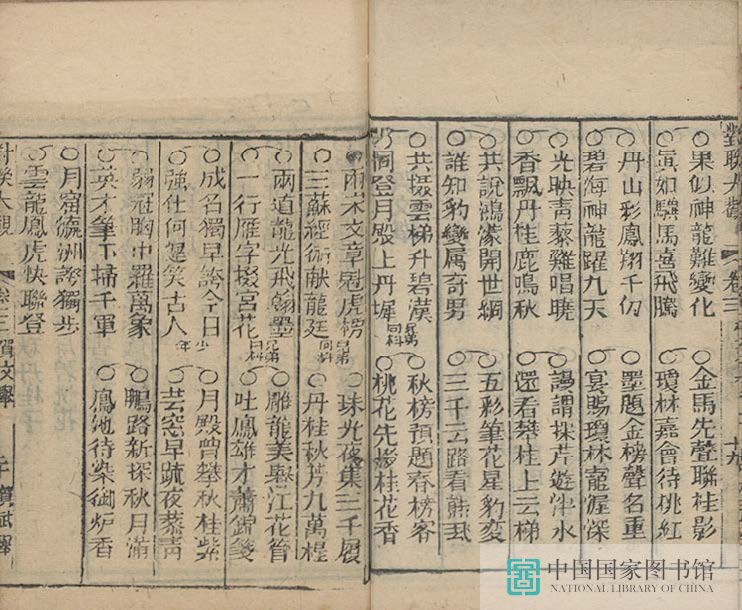 對聯大觀 卷三
果如神龍難變化 金馬先聲聯桂影
真如驥馬喜飛騰 瓊林嘉會待桃紅
丹山彩鳳翔千仞 墨題金榜聲名重
碧海神龍躍九天 宴賜瓊林寵渥深
光映靑藜雞唱曉 謁謂採芹遊泮水
香飄丹桂鹿鳴秋 還看攀桂上云梯
共說鴻濛開世網 五彩筆花星豹变
誰知豹變属奇男 三千云路看熊
共攝雲梯升碧漢 秋榜預題春榜客
登月殿上丹墀 兄弟同科 桃花先桂花香
兩宋文章冠虎榜 珠光夜集三千履
三蘇經術献龍廷 兄弟同科 丹桂秋芳九萬程
兩道龍光飛翰墨 雕龍美譽江花管
一行雁字掇宮花 兄弟同科 吐鳳雄才蕭錦箋
成名獨早誇今日 月殿曾攀秋桂紫
強仕何遲笑古人 少年 芸窓早疏夜藜靑
弱冠胸中羅萬象 鵬路新探秋月滿
英才筆下掃千軍 鳳池待染御炉香
月窟瀛洲誇獨步
雲龍鳳虎快聯登
對聯大觀 卷三 賀文舉 賀武舉
中国国家图书馆
NATIONAL LIBRARY OF CHINA